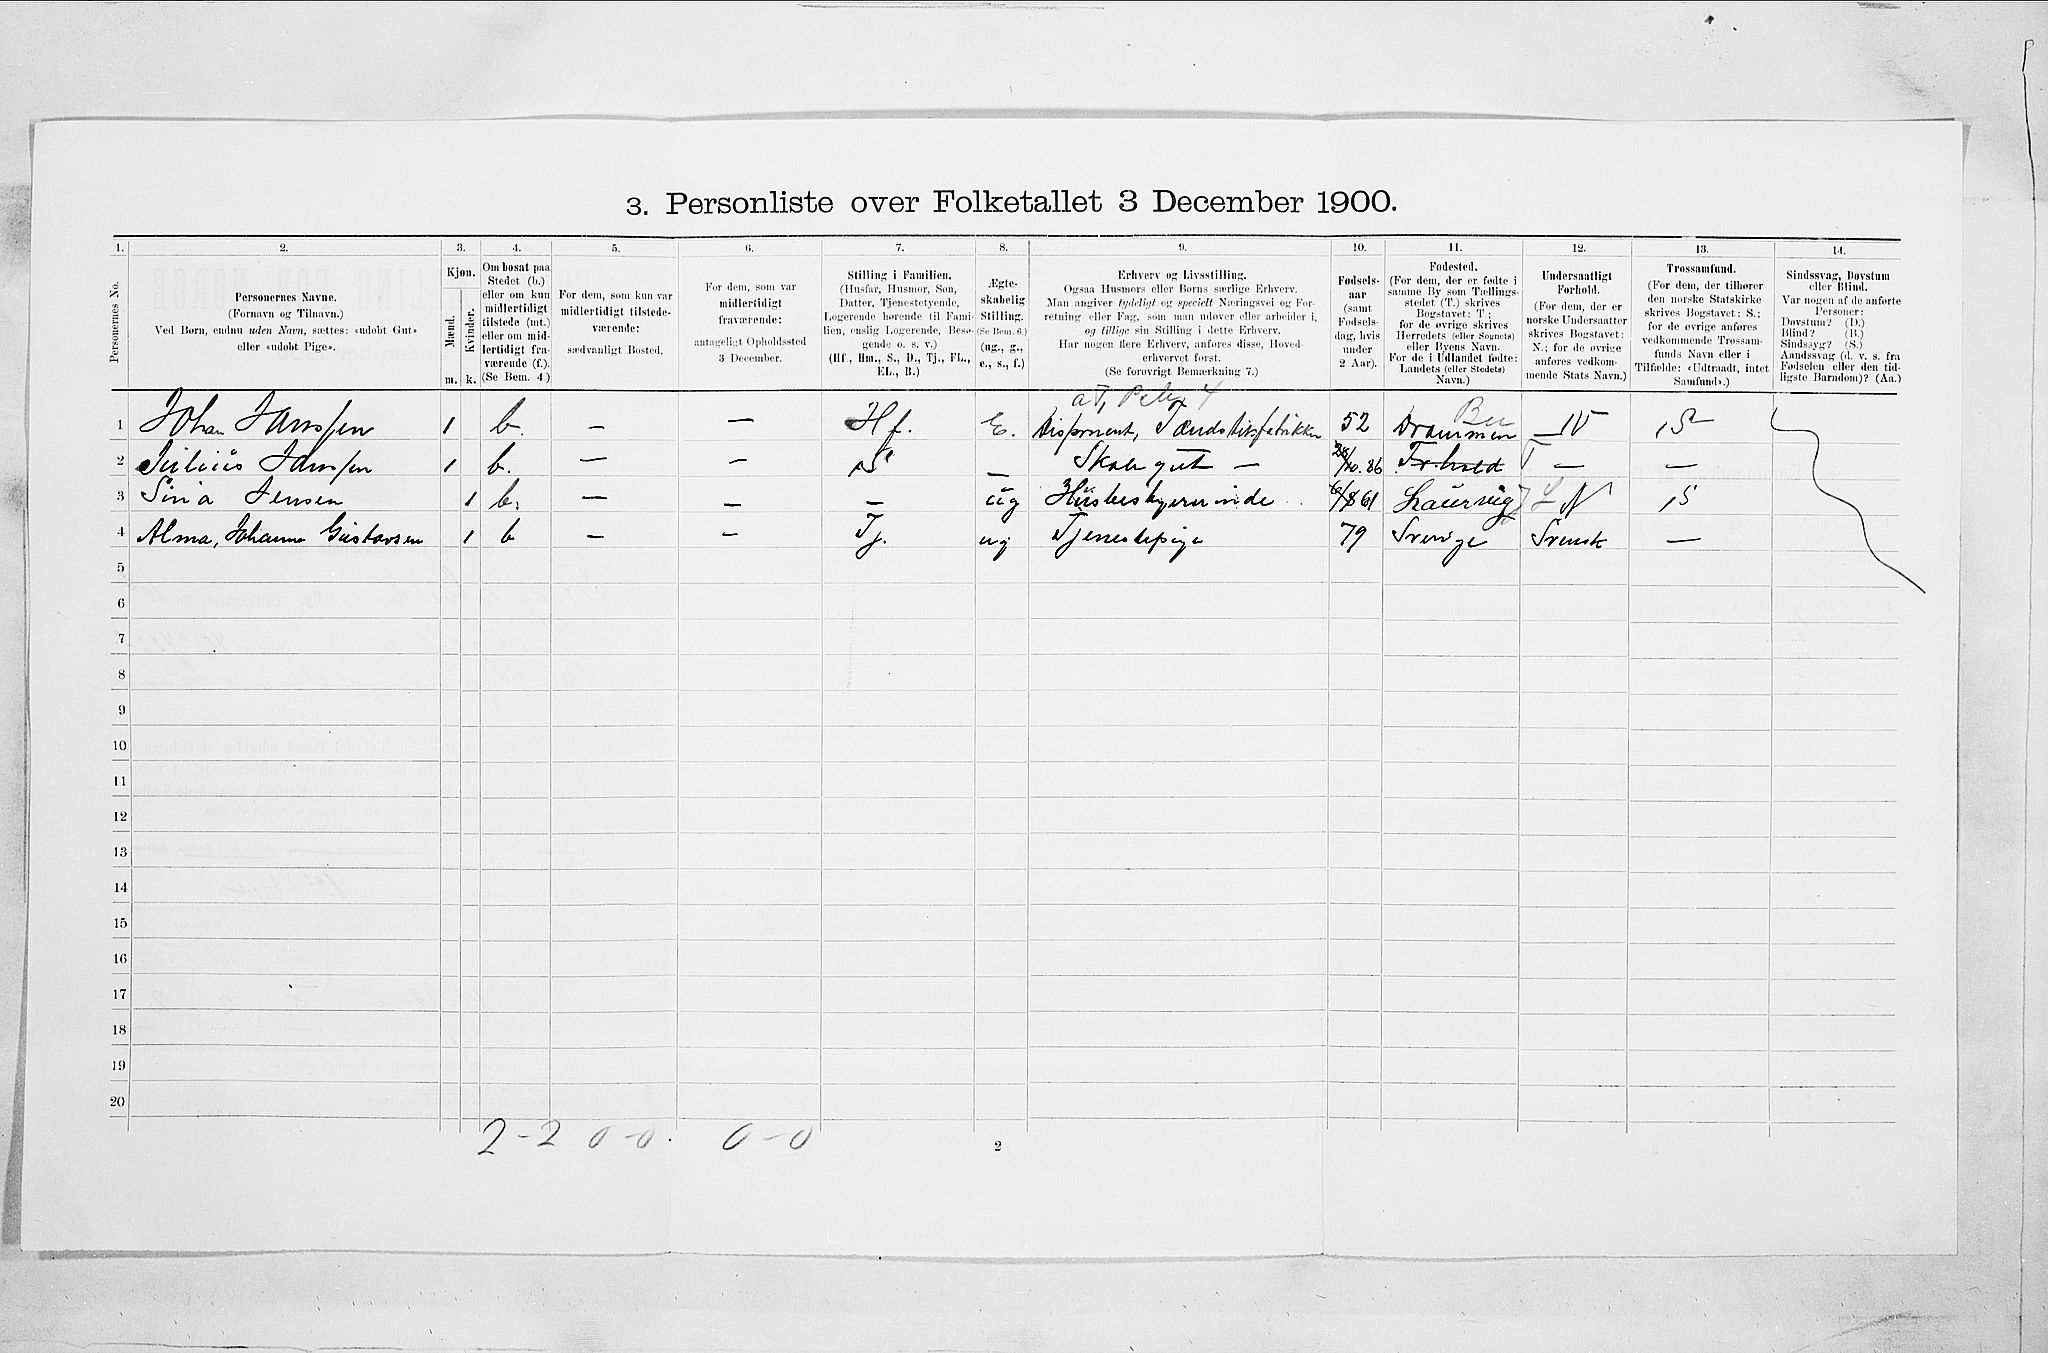 3. Personliste over Folketallet 3 December 1900.
1. 2. 3. 4. 5. 6. 7. 8. 9. 10. 11. 12. 13. 14.
Personernes No.
Personernes Navne.
(Fornavn og Tilnavn.)
Ved Børn, endnu uden Navn, sættes: «udøbt Gut»
eller «udøbt Pige».
Kjøn.
Mænd.
Kvinder.
m. k.
Om bosat paa
Stedet (b.)
eller om kun
midlertidigt
tilstede (mt.)
eller om mid-
lertidigt fra-
værende (f.).
(Se Bem. 4.)
For dem, som kun var
midlertidigt tilstede-
værende:
sædvanligt Bosted.
For dem, som var
midlertidigt
fraværende:
antageligt Opholdssted
3 December.
Stilling i Familien.
(Husfar, Husmor, Søn,
Datter, Tjenestetyende,
Logerende hørende til Fami-
lien, enslig Logerende, Besø-
gende o. s. v.)
(Hf., Hm., S., D., Tj., FL.,
EL., B.)
Ægte-
skabelig
Stilling.
(Se Bem. 6.)
(ug., g.,
e., s., f.)
Erhverv og Livsstilling.
Ogsaa Husmors eller Børns særlige Erhverv.
Man angiver tydeligt og specielt Næringsvei og For-
retning eller Fag, som man udøver eller arbeider i,
og tillige sin Stilling i dette Erhverv.
Har nogen flere Erhverv, anføres disse, Hoved-
erhvervet først.
(Se forøvrigt Bemærkning 7.)
Fødsels-
aar
(samt
Fødsels-
dag, hvis
under
2 Aar).
Fødested.
(For dem, der er fødte i
samme By som Tællings-
stedet (T.) skrives
Bogstavet: T.;
for de øvrige skrives
Herredets (eller Sognets)
eller Byens Navn.
For de i Udlandet fødte:
Landets (eller Stedets)
Navn.)
Undersaatligt
Forhold.
(For dem, der er
norske Undersaatter
skrives Bogstavet:
N.; for de øvrige
anføres vedkom-
mende Stats Navn.)
Trossamfund.
(For dem, der tilhører
den norske Statskirke
skrives Bogstavet: S.;
for de øvrige anføres
vedkommende Trossam-
funds Navn eller i
Tilfælde: «Udtraadt, intet
Samfund».)
Sindssvag, Døvstum
eller Blind.
Var nogen af de anførte
Personer:
Døvstum? (D.)
Blind? (B.)
Sindssyg? (S.)
Aandssvag (d. v. s. fra
Fødselen eller den tid-
ligste Barndom)? (Aa.)
1 Johan Janssen 1 b. — — Hf. E. Disponent, Tændstikfabrikken 52 Drammen Bu N S
2 Julius Janssen 1 b. — — S — Skolegut — 28/10.86 T — —
3 Sina Jensen 1 b. — — — ug Husbestyrerinde 6/8 61 Laurvig N S
4 Alma, Johanne Gustavsen 1 b — — Tj. ug Tjenestepige 79 Sverige Svensk —
5
6
7
8
9
10
11
12
13
14
15
16
17
18
19
20
2-2 0-0 0-0
2